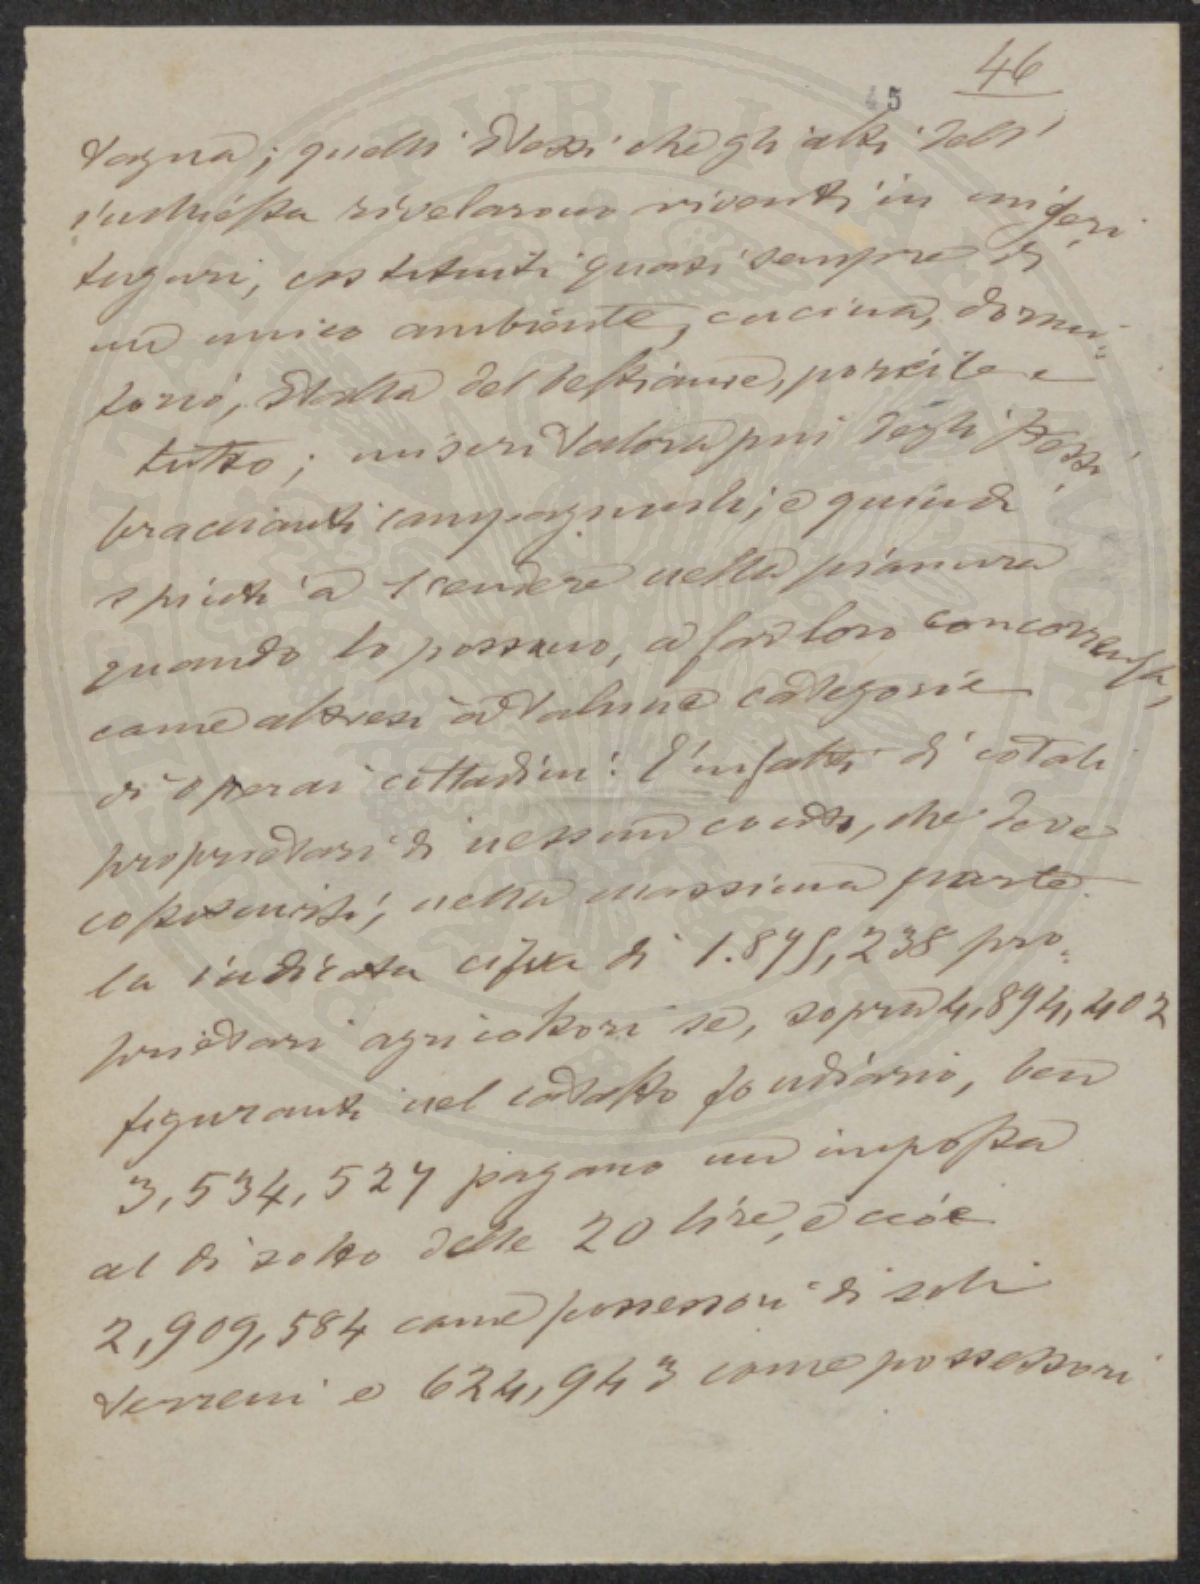 46
45
tagna; quelli stessi che gli atti dell'
inchiesta rivelarono viventi in miseri
tuguri, costituiti quasi sempre di
un unico ambiente, cucina, dormi=
torio, stalla del bestiame, porcile e
tutto; miseri talora più degli stessi
braccianti campagnuoli; e quindi
spinti a scendere nella pianura
quando lo possano, a far loro concorrenza,
come altresì a talune categorie
di operai cittadini: E infatti di cotali
proprietari di nessun conto, che deve
costituirsi, nella massima parte
la indicata cifra di 1.875,238 pro=
prietari agricoltori se, sopra 4,894,402
figuranti nel catasto fondiario, ben
3,534,527 pagano un imposta
al di sotto delle 20 lire, e cioè
2,909,584 come possessori di soli
terreni e 624,943 come possessori